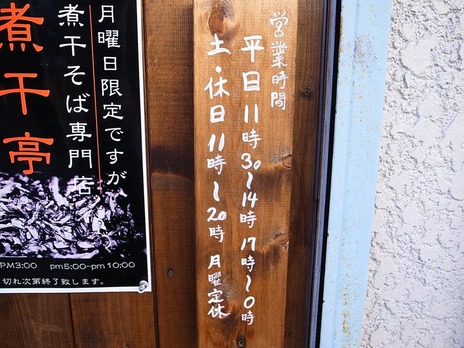 営業時間
平日11時30〜14時 17時〜0時
土・休日11時〜20時 月曜定休
月曜日限定ですが、
煮干そば専門店
煮干亭
PM3:00 pm5:00~pm10:00
切れ次第終了致します。